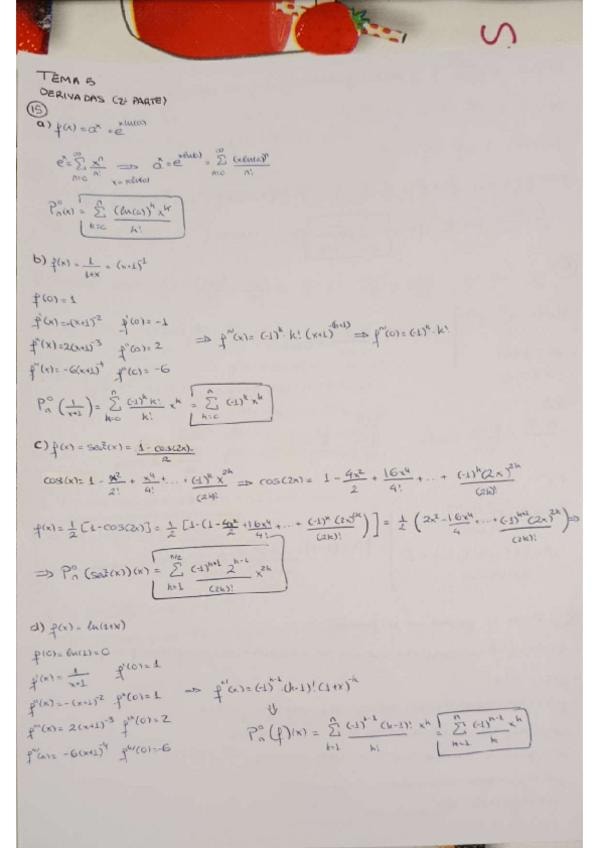 S.
TEMA 5
DERIVADAS (2ª PARTE)
15
a) f(x) = a^x = e^{xln(a)}
e^x = Σ_{n=0}^{∞} x^n/n! ⟹ (x = xln(a)) a^x = e^{xln(a)} = Σ_{n=0}^{∞} (xln(a))^n/n!
P_n^0(x) = Σ_{k=0}^{n} (ln(a))^k x^k/k!
b) f(x) = 1/(1+x) = (x+1)^{-1}
f(0) = 1
f'(x) = -(x+1)^{-2} f'(0) = -1
f''(x) = 2(x+1)^{-3} f''(0) = 2 ⟹ f^n(x) = (-1)^k · k! (x+1)^{-(k+1)} ⟹ f^n(0) = (-1)^k · k!
f'''(x) = -6(x+1)^{-4} f'''(0) = -6
P_n^0 (1/(x+1)) = Σ_{k=0}^{n} (-1)^k k!/k! x^k = Σ_{k=0}^{n} (-1)^k x^k
c) f(x) = sen²(x) = (1-cos(2x))/2
cos(x) = 1 - x²/2! + x⁴/4! + ... + (-1)^k x^{2k}/(2k)! ⟹ cos(2x) = 1 - 4x²/2 + 16x⁴/4! + ... + (-1)^k (2x)^{2k}/(2k)!
f(x) = 1/2 [1-cos(2x)] = 1/2 [1-(1-4x²/2+16x⁴/4!+...+(-1)^k (2x)^{2k}/(2k)!)] = 1/2 (2x²-16x⁴/4...+(-1)^{k+1}(2x)^{2k}/(2k)!) ⟹
⟹ P_n^0 (sen²(x))(x) = Σ_{k=1}^{n/2} (-1)^{k+1} 2^{k-1}/(2k)! x^{2k}
d) f(x) = ln(1+x)
f(0) = ln(1) = 0
f'(x) = 1/(x+1) f'(0) = 1
f''(x) = -(x+1)^{-2} f''(0) = 1 ⟹ f^n(x) = (-1)^{k-1} · (k-1)! (1+x)^{-k}
f'''(x) = 2(x+1)^{-3} f'''(0) = 2 ⇓
f''''(x) = -6(x+1)^{-4} f''''(0) = -6 P_n^0(f)(x) = Σ_{k=1}^{n} (-1)^{k-1} (k-1)!/k! x^k = Σ_{k=1}^{n} (-1)^{k-1}/k x^k